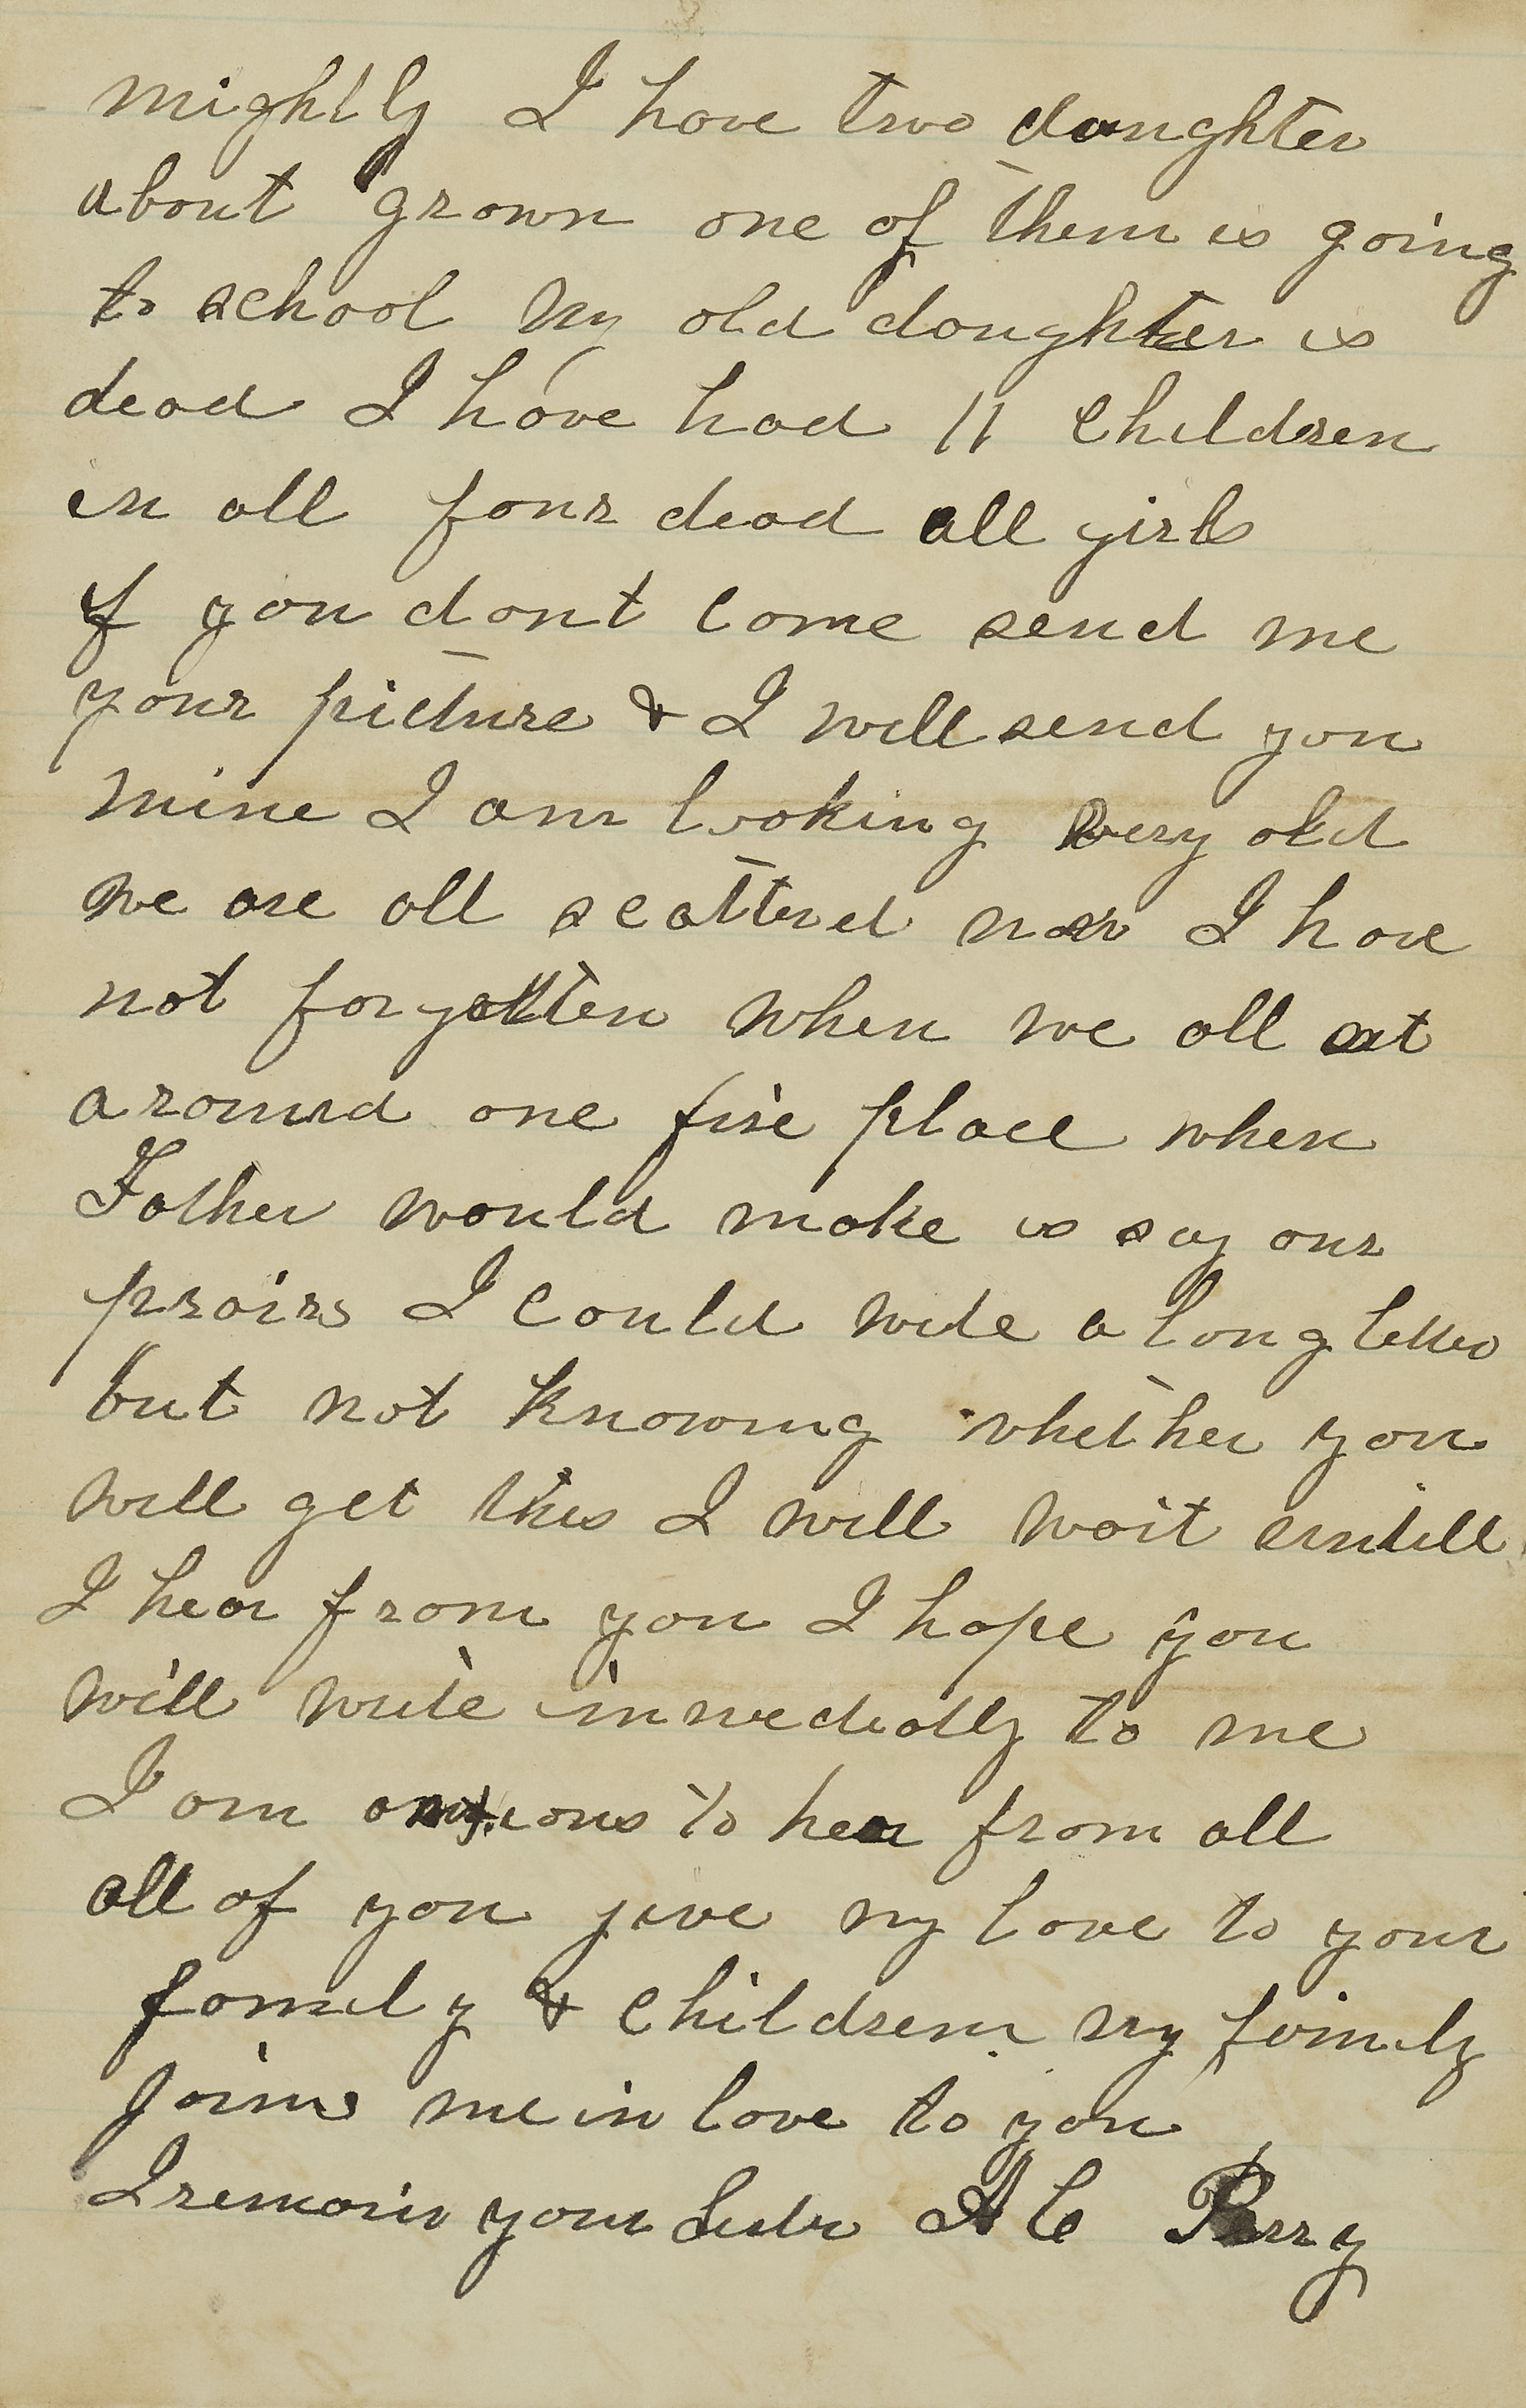 mightly I have two daughter
about grown one of them is going
to school my old daughter is
dead I have had 11 children
in all four dead all girls
if you dont come send me
your picture & I will send you
mine I am looking very old
we are all scatterd now I have
not forgotten when we all sat
around one fire place when
Father would make us say our
prairs I could write a long letter
but not knowing whether you
will get this I will wait untill
I hear from you I hope you
will write immediatly to me
I am anxious to hear from all
all of you give my love to your
family & children my faimly
joins me in love to you
I remain your Sister A C Perry